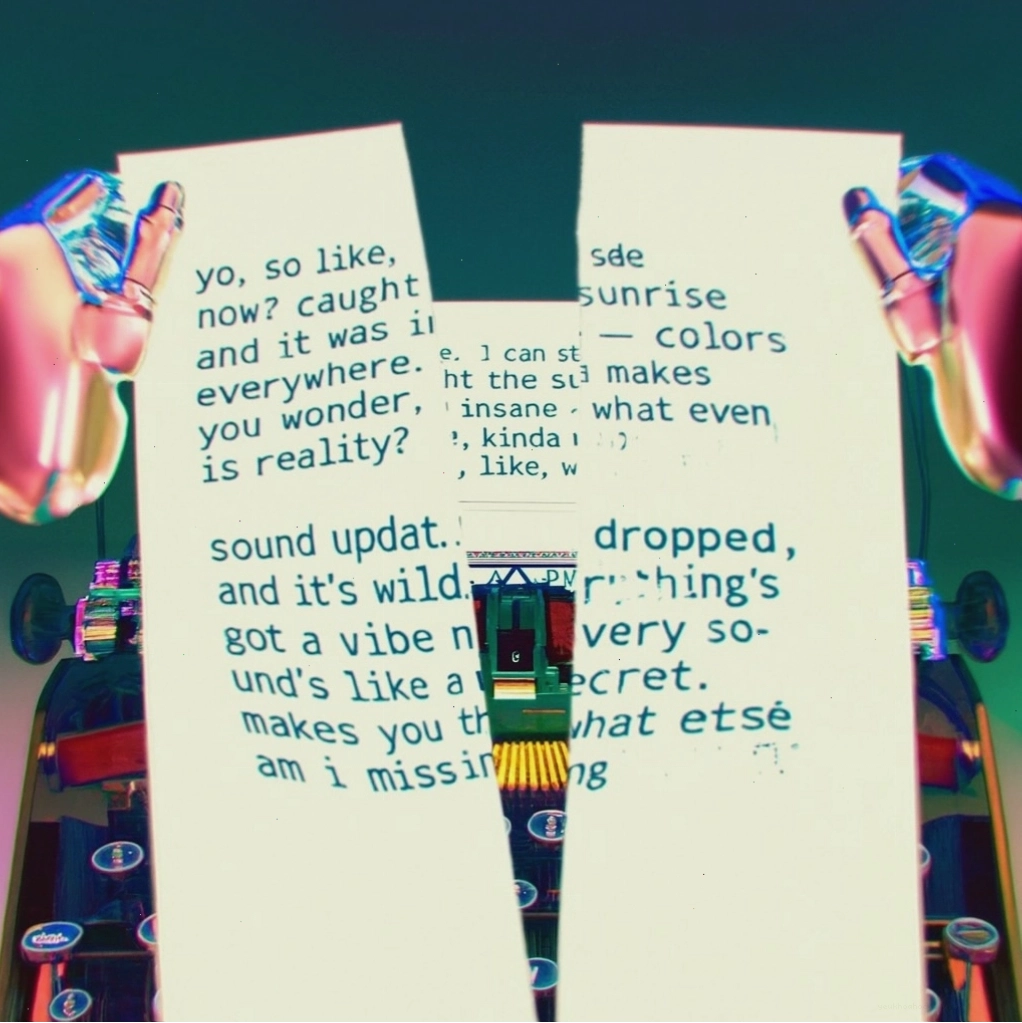 yo, so like, sde
now? caught sunrise
and it was — colors
everywhere. makes
you wonder, what even
is reality?
e. I can st
ht the su
insane
, kinda
, like, w
sound updat.. dropped,
and it's wild. hing's
got a vibe n very so-
und's like a ecret.
makes you th what etsė
am i missin ng